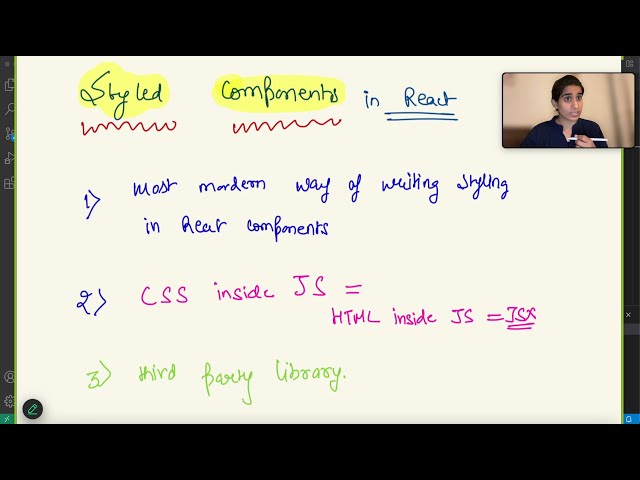 Styled Components in React
1) Most mordern way of writing styling
in React components
2) CSS inside JS =
HTML inside JS = JSX
3) third party library.